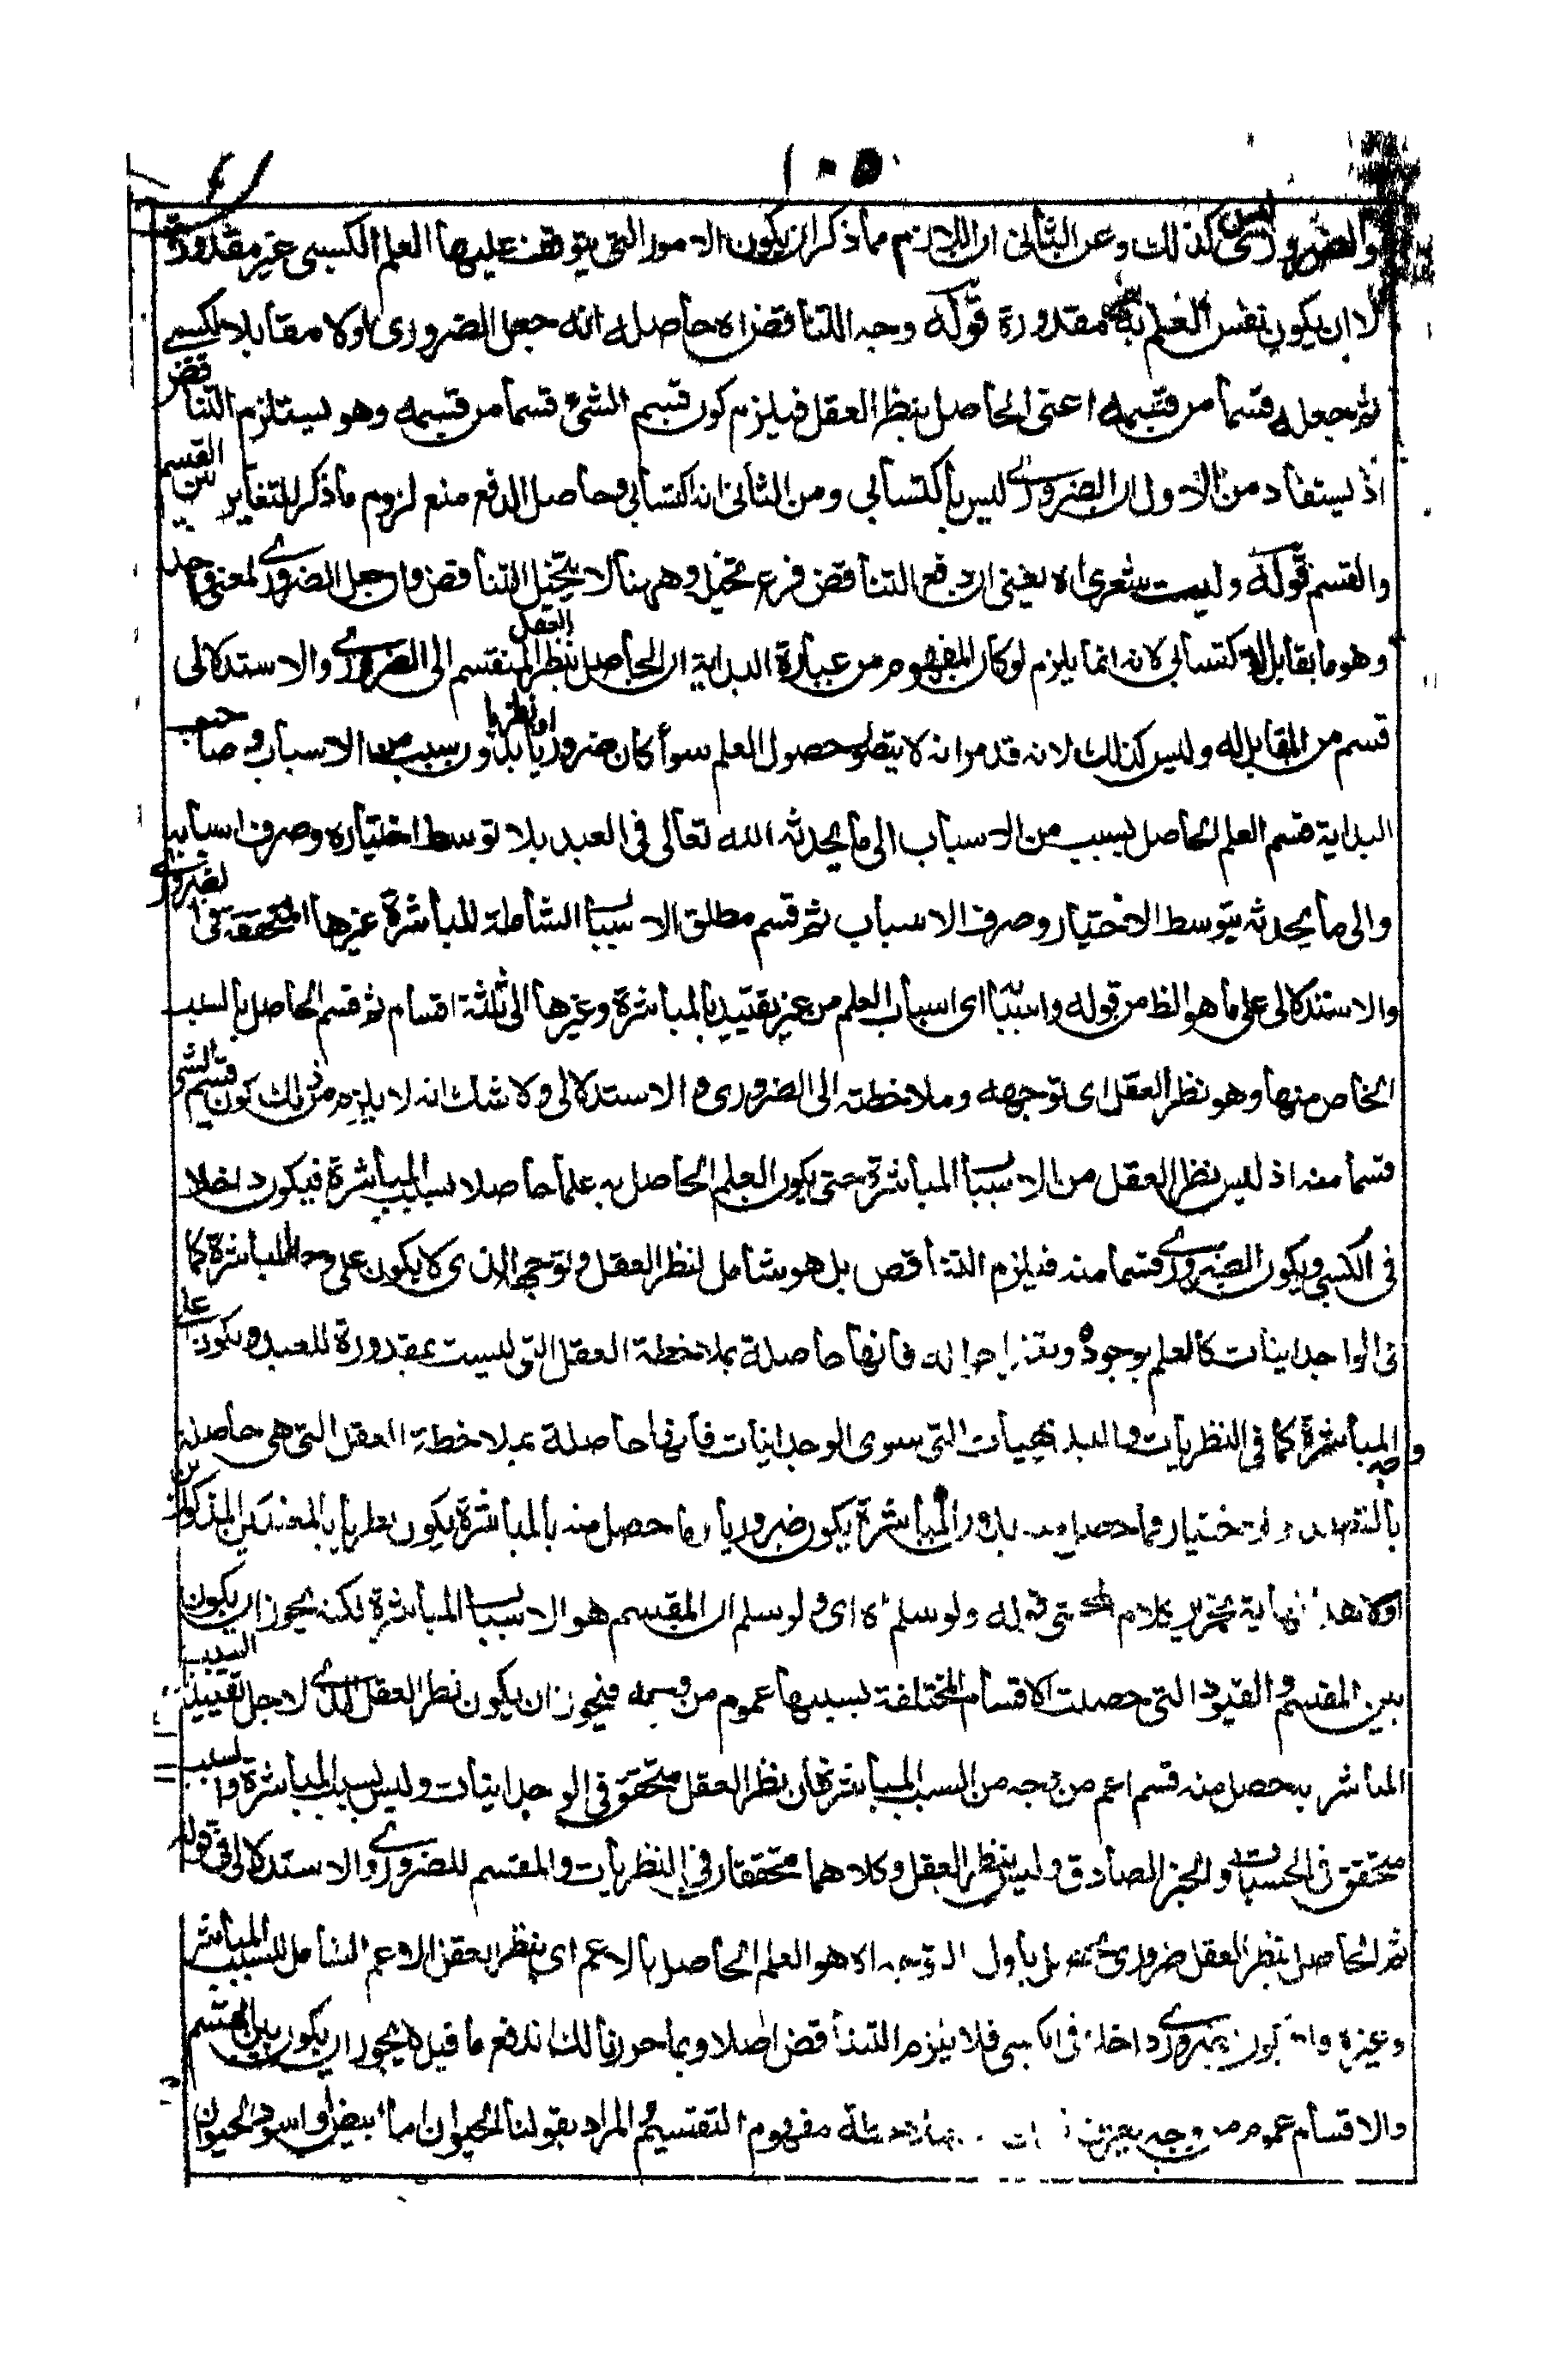 ١٠٥
والضروري ليس كذلك وعن الثاني ان اللازم مما ذكر ان يكون الامور التي يتوقف عليها العلم الكسبي غير مقدورة
لا ان يكون نفس العلم به مقدورة قوله وجه التناقض اه حاصله انه جعل الضروري اولا مقابلا للكسبي
ثم جعله قسما من قسيمه اعني الحاصل بنظر العقل فيلزم كون قسيم الشئ قسما من قسيمه وهو يستلزم التناقض
اذ يستفاد من الاول ان الضروري ليس باكتسابي ومن الثاني انه اكتسابي وحاصل الدفع منع لزوم ما ذكر للتغاير بين القسيم
والقسم قوله وليت شعري اه يعني ان دفع التناقض فرع تخيل وههنا لا يتخيل التناقض وان جعل الضروري لمعنى واحد
وهو ما يقابل الاكتسابي لانه انما يلزم لو كان المفهوم من عبارة البداية ان الحاصل بنظر العقل المنقسم الى الضروري والاستدلالي
قسم من المقابل له وليس كذلك لانه قد مر انه لا يتصور حصول العلم سوأ كان ضروريا او نظريا بدون سبب من الاسباب وصاحب
البداية قسم العلم الحاصل بسبب من الاسباب الى ما يحدثه الله تعالى في العبد بلا توسط اختياره وصرف اسبابه
والى ما يحدثه بتوسط الاختيار وصرف الاسباب ثم قسم مطلق الاسباب الشاملة للمباشرة وغيرها المتحققة في الضروري
والاستدلالي على ما هو الظ من قوله واسبابها اى اسباب العلم من غير تقييد بالمباشرة وغيرها الى ثلثة اقسام ثم قسم الحاصل بالسبب
الخاص منها وهو نظر العقل اى توجهه وملاحظته الى الضروري والاستدلالي ولا شك انه لا يلزم من ذلك كون قسيم الشئ
قسما منه اذ ليس نظر العقل من الاسباب المباشرة حتى يكون العلم الحاصل به علما حاصلا بسبب المباشرة فيكون داخلا
في الكسبي ويكون الضروري قسما منه فيلزم التناقض بل هو شامل لنظر العقل وتوجهه الذى لا يكون على وجه المباشرة كما
في الواجدانيات كالعلم بوجوده وتغير احواله فانها حاصلة بملاحظة العقل التي ليست بمقدورة للعبد ويكون على
وجه المباشرة كما في النظريات والبديهيات التي سوى الوجدانيات فانها حاصلة بملاحظة العقل التي هي حاصلة
بالقصد والاختيار فما حصل منه بدون المباشرة يكون ضروريا وما حصل منه بالمباشرة يكون نظريا بالمعنيين المذكورين
اولا هذا نهاية تحرير كلام المحشى قوله ولو سلم اه اى ولو سلم ان المقسم هو الاسباب المباشرة لكنه يجوز ان يكون
بين المقسم والقيود التي حصلت الاقسام المختلفة بسببها عموم من وجه فيجوز ان يكون نظر العقل الذى لاجل تقييد السبب
المباشر به حصل منه قسم اعم من وجه من السبب المباشر فان نظر العقل متحقق في الوجدانيات وليس بسبب المباشرة والسبب
متحقق في الحسيات والخبر الصادق وليس بنظر العقل وكلاهما متحققان في النظريات والمقسم للضروري والاستدلالي في قوله
ثم الحاصل بنظر العقل ضروري يحصل باول التوجه اه هو العلم الحاصل بالاعم اى بنظر العقل الاعم الشامل للسبب المباشر
وغيره فلا يكون الضروري داخلا في الكسبي فلا يلزم التناقض اصلا وبما حررنا لك اندفع ما قيل لا يجوز ان يكون بين المقسم
والاقسام عموم من وجه بملاحظة مفهوم التقسيم المراد بقولنا الحيوان اما ابيض او اسود الحيوان